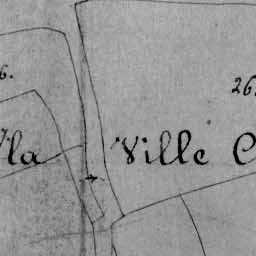 6.
26.
la Ville C